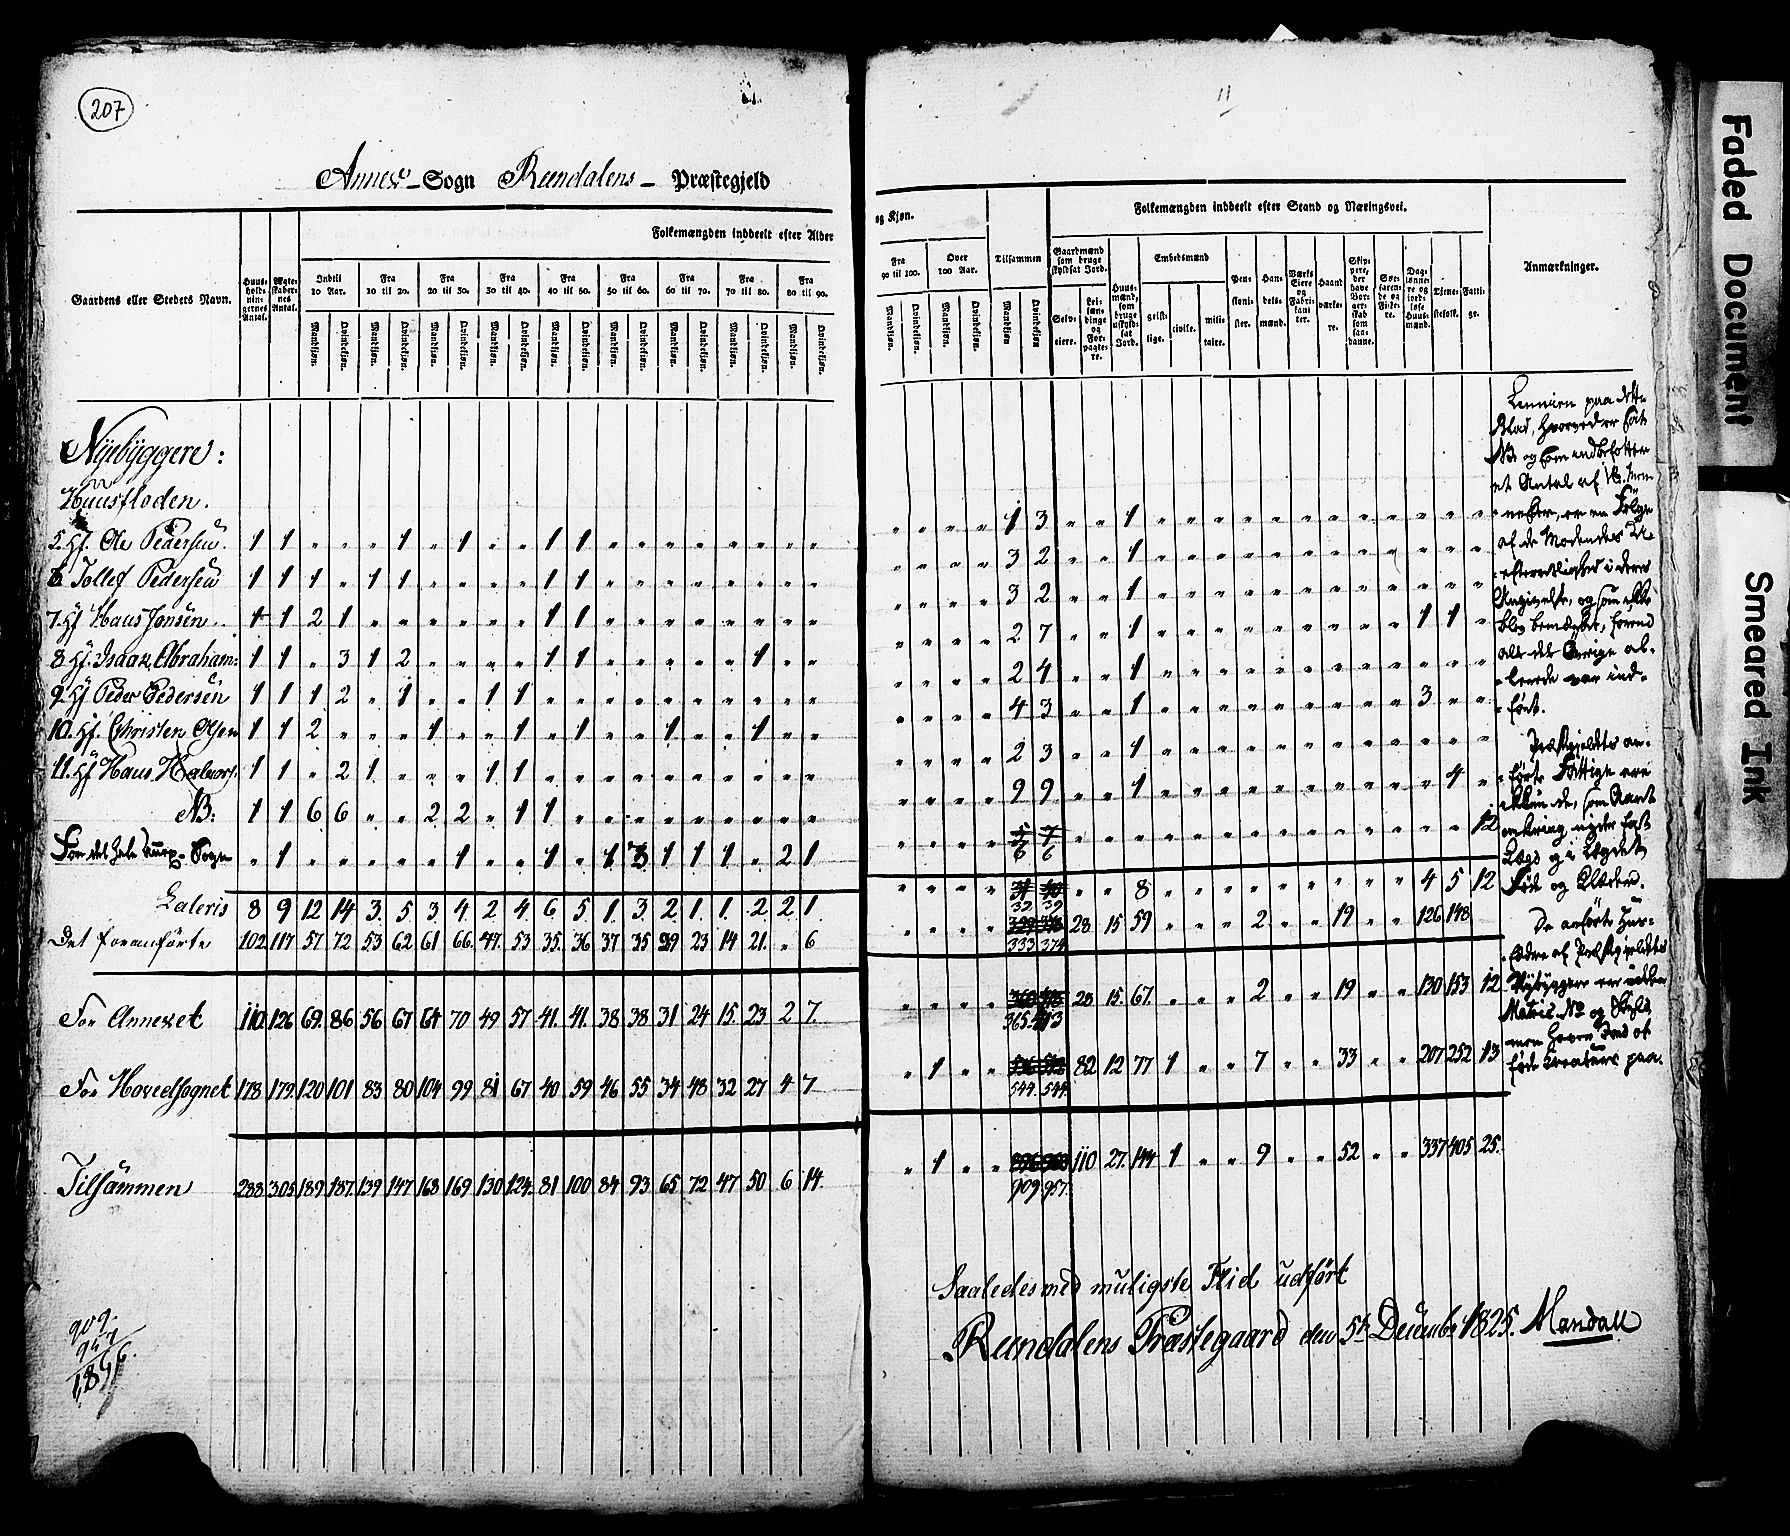 207
11
Annex-Sogn Rendalens- Præstegjeld
Gaardens eller Stedets Navn.
Huusholdningernes Antal.
Ægteskabernes Antal.
Folkemængden inddeelt efter Alder
og Kjøn.
Indtil 10 Aar.
Fra 10 til 20.
Fra 20 til 30.
Fra 30 til 40.
Fra 40 til 50.
Fra 50 til 60.
Fra 60 til 70.
Fra 70 til 80.
Fra 80 til 90.
Fra 90 til 100.
Over 100 Aar.
Mandkjøn. Qvindekjøn.
Tilsammen
Mandkjøn Qvindekjøn
Folkemængden inddeelt efter Stand og Næringsvei.
Gaardmænd som bruge skyldsat Jord.
Selveiere.
Leilændinge og Forpagtere.
Huusmænd, som bruge uskyldsat Jord.
Embedsmænd
geistlige.
civile.
militaire.
Pensionister.
Handelsmænd.
Værkseiere og Fabrikanter.
Haandværkere.
Skippere, der have Borgerskab som saadanne.
Søefarende og Fiskere.
Daglønnere og jordløse Huusmænd.
Tjenestefolk.
Fattige.
Anmærkninger.
Nyebyggere:
Huusfloden.
5. Hf. Ole Pedersen. 1 1 " " " 1 " 1 " " 1 1 " " " " " " " " " " " " 1 3 " " 1 " " " " " " " " " " " "
6 Tollef Pedersen 1 1 1 " 1 1 " " " " 1 1 " " " " " " " " " " " " 3 2 " " 1 " " " " " " " " " " " "
7. Hf Hans Jonsen. 1 1 2 1 " " " " " " 1 1 " " " " " " " " " " " " 3 2 " " 1 " " " " " " " " " " " "
8 Hf. Isaak Abraham: 1 1 " 3 1 2 " " " " 1 1 " " " " " 1 " " " " " " 2 7 " " 1 " " " " " " " " " 1 1 "
9. Hf Peder Pedersen 1 1 1 2 " 1 " " 1 1 " " " " " " " " " " " " " " 2 4 " " 1 " " " " " " " " " " " "
10. Hf. Christen Olsen 1 1 2 " " " 1 " " 1 " 1 " " 1 " " 1 " " " " " " 4 3 " " 1 " " " " " " " " " 3 " "
11. Hf Hans Halvors. 1 1 " 2 1 " " " 1 1 " " " " " " " " " " " " " " 2 3 " " 1 " " " " " " " " " " " "
NB: 1 1 6 6 " " 2 2 " 1 1 " " " " " " " " " " " " " 9 9 " " 1 " " " " " " " " " " 4 "
For det hele Annex-Sogn " 1 " " " " " 1 " " 1 " 1 3 1 1 1 " 2 1 " " " " 6 6 " " " " " " " " " " " " " " 12
Lateris 8 9 12 14 3. 5 3 4. 2 4. 6 5. 1. 3. 2. 1. 1. 2. 2 1. " " " " 32 39 " " 8 " " " " " " " " " 4 5 12
Det foranførte 102 117 57 72 53 62 61 66. 47. 53 35. 36 37 35 29 23 14 21. " 6 " " " " 333 374 28 15 59 " " " " 2 " " 19 " " 126 148
For Annexet 110 126 69. 86 56 67 64 70 49 57 41. 41. 38 38 31 24 15. 23 2 7. " " " " 365 413 28 15. 67. " " " " 2 " " 19 " " 130 153 12
For Hovedsognet 178 179. 120 101 83 80 104 99 81 67 40 59 46 55 34 48 32 27 4 7 " 1 " " 544. 544. 82 12 77 1 " " " 7 " " 33 " " 207 252 13
Tilsammen 288 305 189 187. 139 147 168 169 130 124. 81 100 84 93 65 72 47 50 6 14. " 1 " " 909. 957. 110 27. 144 1 " " " 9 " " 52 " " 337 405 25.
Linnien paa dette
Blad, hvorved er sat
NB og som indbefatter
et Antal af 18. Men-
nesker, er en Følge
Angivelse, og som ikke
blev bemærket, førend
alt det Øvrige al-
lerede var ind-
ført.
Præstegjeldets an-
førte Fattige ere
ikkun de, som Aaret
omkring nyder fast
Lægd og i Lægdet
Føde og Klæder.
De anførte Huus-
fædre af Præstegjeldets
Nybyggere ere uden
Matric. No og Skyld,
men haver Jord at
føde Creature paa.
Saaledes med muligste Flid udført
Rendalens Præstegaard den 5te Decembr 1825. Mandall
909.
957
1,866.
Faded Document
Smeared Ink